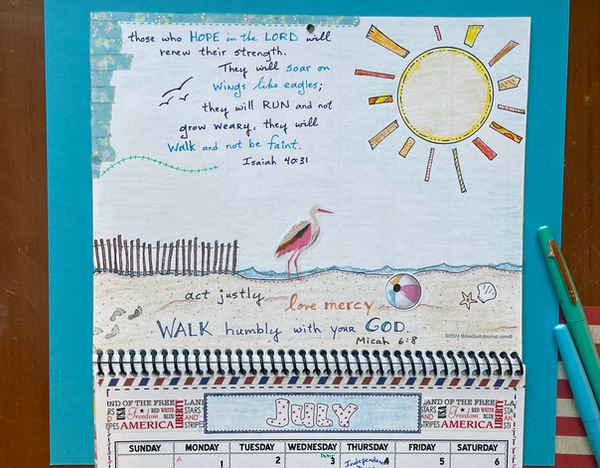 those who HOPE in the LORD will
renew their strength.
They will soar on
wings like eagles;
they will RUN and not
grow weary, they will
walk and not be faint.
Isaiah 40:31
act justly
love mercy
WALK humbly with your GOD.
Micah 6:8
©2024 BibleQuiltJournal.com®
AND OF THE FREE
USA Freedom RED WHITE BLUE
AMERICA
LIBERTY
LAND
STARS AND
STRIPES
JULY
AND OF THE FREE
USA Freedom RED WHITE BLUE
AMERICA
LIBERTY
LAN
STARS AND
STRIPES
SUNDAY MONDAY TUESDAY WEDNESDAY THURSDAY FRIDAY SATURDAY
1 2 3 4 5 6